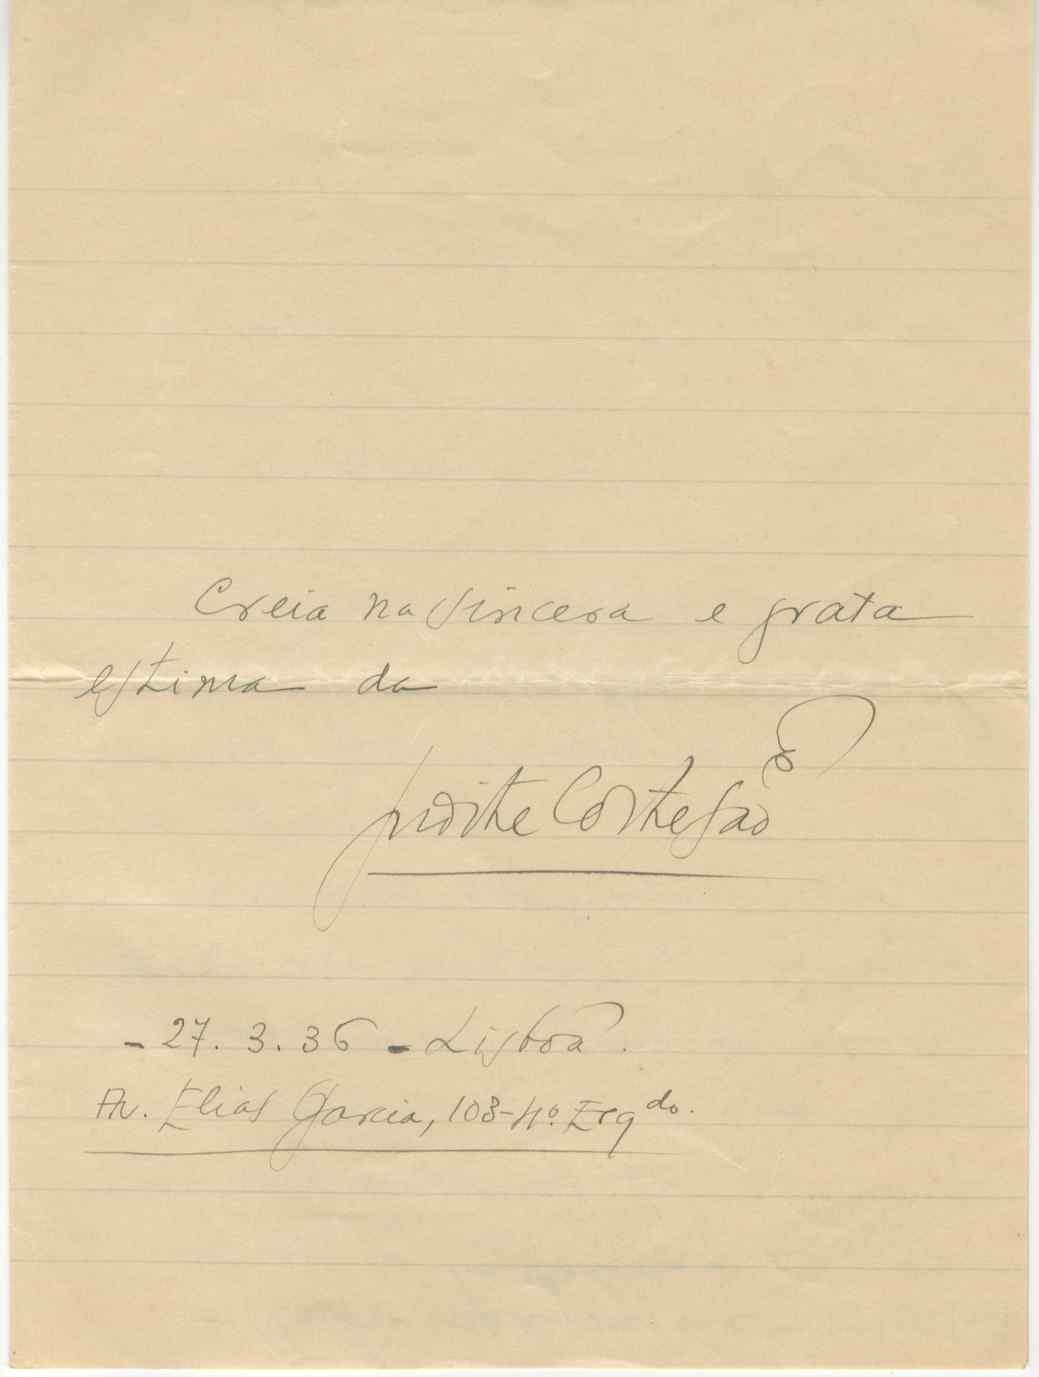 Creia na sincera e grata
estima da
Judite Cortesão
- 27. 3. 36 - Lisboa.
Av. Elias Garcia, 103-4º. Esqdo.